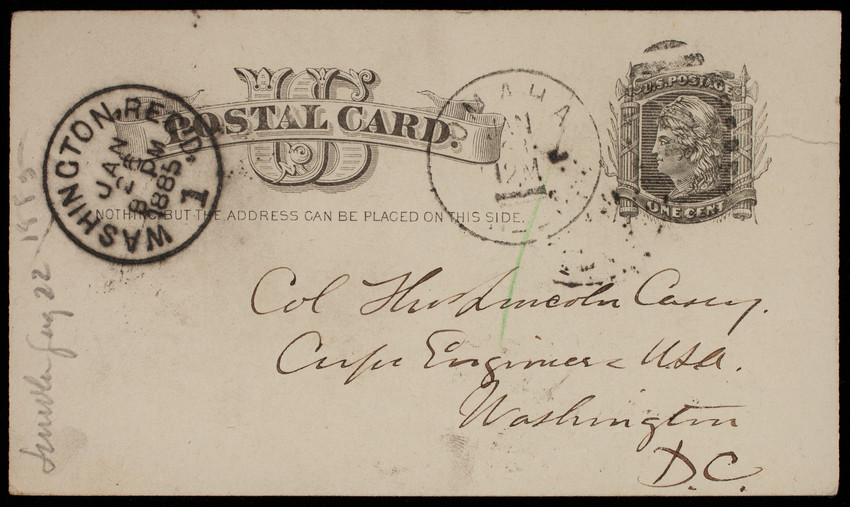 U S
POSTAL CARD.
NOTHING BUT THE ADDRESS CAN BE PLACED ON THIS SIDE.
WASHINGTON, REC'D.
JAN
26
8 PM
1885
1
OMAHA
JAN
12M
U.S. POSTAGE
ONE CENT
Col Thos Lincoln Casey.
Corps Engineers USA.
Washington
D.C.
22 1885